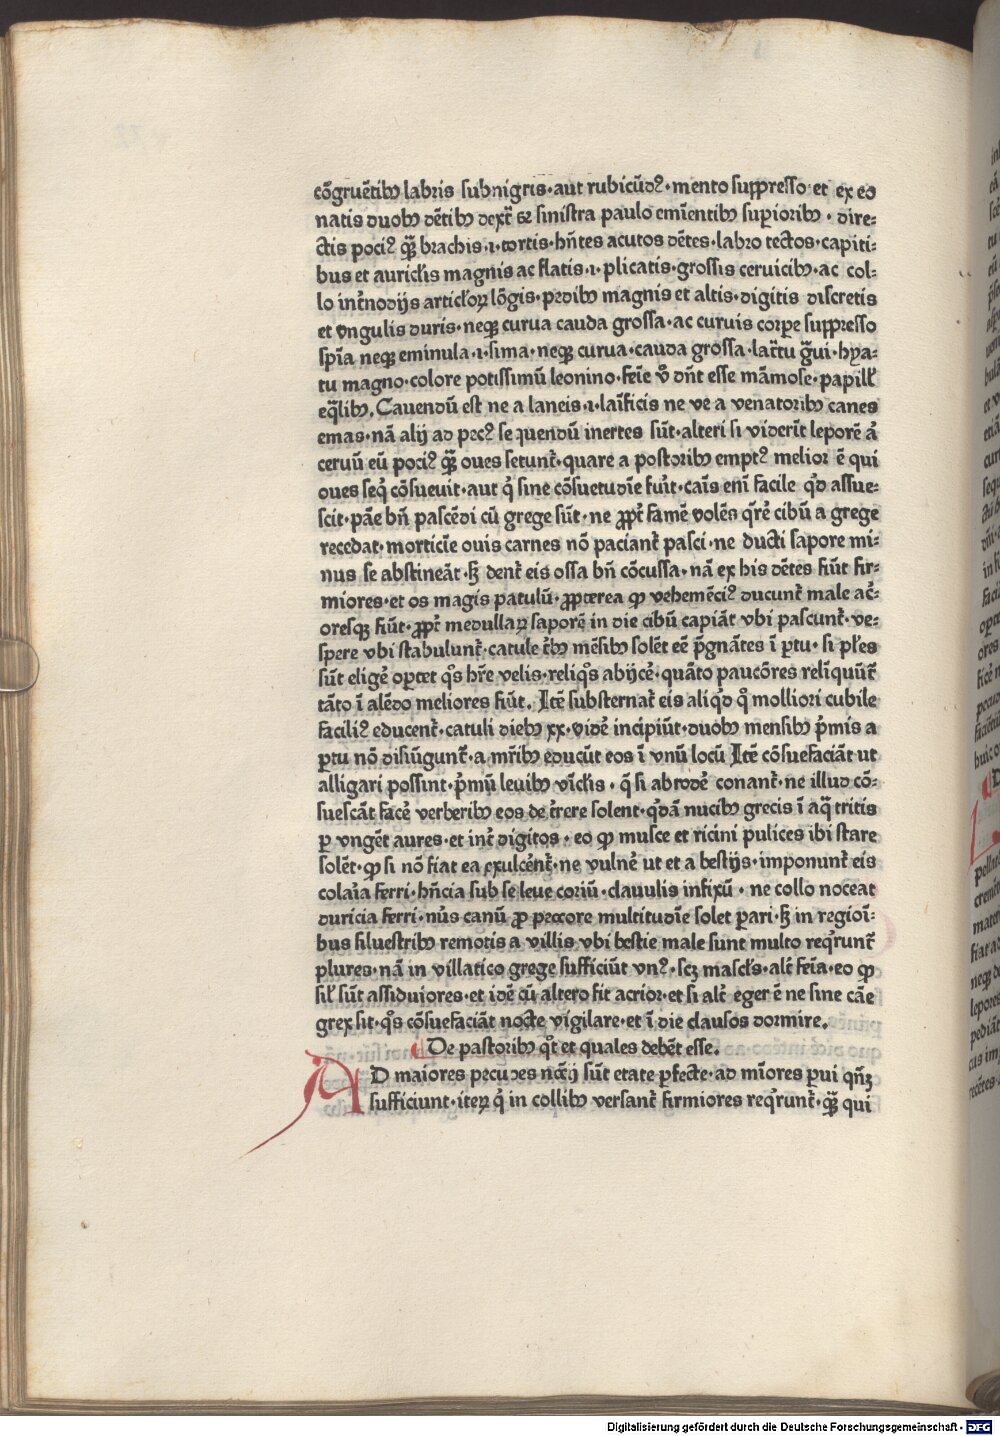 cōgruētibꝫ labris subnigris · aut rubicūdꝰ · mento suppresso · et ex eo
natis duobꝫ dētibꝫ dext̄ & sinistra paulo emīentibꝫ suꝑioribꝫ · dire-
ctis pociꝰ q̄ꝫ brachis · ı · tortis · hn̄tes acutos dētes · labro tectos · capiti-
bus et auricl'is magnis ac flatis · ı · plicatis · grossis ceruicibꝫ · ac col-
lo int̄nodijs articl'oꝝ lōgis · pedibꝫ magnis et altis · digitis discretis
et vngulis duris · neqꝫ curua cauda grossa · ac curuis corpe suppresso
spīa neqꝫ eminula · ı · sima · neqꝫ curua · cauda grossa · lat̄tu g̃ui · hya-
tu magno · colore potissimū leonino · feīe v̄o dn̄t esse māmose · papill'
eq̄libꝫ. Cauendū est ne a laneis · ı · lanīficis ne ve a venatoribꝫ canes
emas · nā alij ad pecꝰ sequendū inertes sūt · alteri si viderīt leporē aͭ
ceruū eū pociꝰ q̄ꝫ oues setunt̄ · quare a pastoribꝫ emptꝰ melior ē qui
oues seqͥ cōsueuit · aut qͥ sine cōsuetudīe fuīt · caīs enī facile qͥd assue-
scit · pāe bn̄ pascēdi cū grege sūt · ne ꝓpt̄ famē volēs q̄re᷑ cibū a grege
recedat · morticīe ouis carnes nō paciant̄ pasci · ne ducti sapore mi-
nus se abstineāt · sꝫ dent̄ eis ossa bn̄ cōcussa · nā ex his dētes fiūt fir-
miores · et os magis patulū · ꝓpterea ꝙ vehemēciꝰ ducunt̄ male ac᷑-
oresqꝫ fiūt · ꝓpt̄ medullaꝝ saporē in die cibū capiāt vbi pascunt̄ · ve-
spere vbi stabulunt̄ · catule t̄bꝫ mēsibꝫ solēt eē p̄gnātes ī ꝑtu · si pl'es
sūt elige᷑ oꝑtet qͦs hr̄e velis · reliqͦs abijce᷑ · quāto paucōres relīquūt̄
tāto ī alēdo meliores fiūt. Itē substernat̄ eis aliqͥd qͦ molliori cubile
faciliꝰ educent̄ · catuli diebꝫ xx · vide᷑ incipiūt · duobꝫ mensibꝫ p̄mis a
ꝑtu nō disiūgunt̄ · a mr̄ibꝫ educūt eos ī vnū locū Itē cōsuefaciāt ut
alligari possint · p̄mū leuibꝫ vīcl'is · q̄ si abrode᷑ conant̄ · ne illud cō-
suescāt face᷑ verberibꝫ eos de t̄rere solent · qͥdā nucibꝫ grecis ī aq̄ tritis
ꝑ vngēt aures · et int̄ digitos · eo ꝙ musce et ricīni pulices ibi stare
solēt · ꝙ si nō fiat ea exulce᷑nt̄ · ne vulne᷑ ut et a bestijs · imponunt̄ eis
colaīa ferri · hn̄cia sub se leue coriū · clauulis infixū · ne collo noceat
duricia ferri · nu᷑s canū ꝓ pecore multitudīe solet ꝑari · sꝫ in regioī-
bus siluestribꝫ remotis a villis vbi bestie male sunt multo req̄runt̄
plures · nā in villatico grege sufficiūt vnꝰ · scꝫ mascl's · alt̄ feīa · eo ꝙ
sil' sūt assiduiores · et idē cū altero fit acrior · et si alt̄ eger ē ne sine cāe
grex sit · qͦs cōsuefaciāt nocte vigilare · et ī die clausos dormire.
De pastoribꝫ qͦt et quales debēt esse.
AD maiores pecudes necc̄ij sūt etate ꝑfecte · ad mīores ꝑui qn̄ꝫ
sufficiunt · iteꝝ qͥ in collibꝫ versant̄ firmiores req̄runt̄ · q̄ꝫ qui
Digitalisierung gefördert durch die Deutsche Forschungsgemeinschaft - DFG